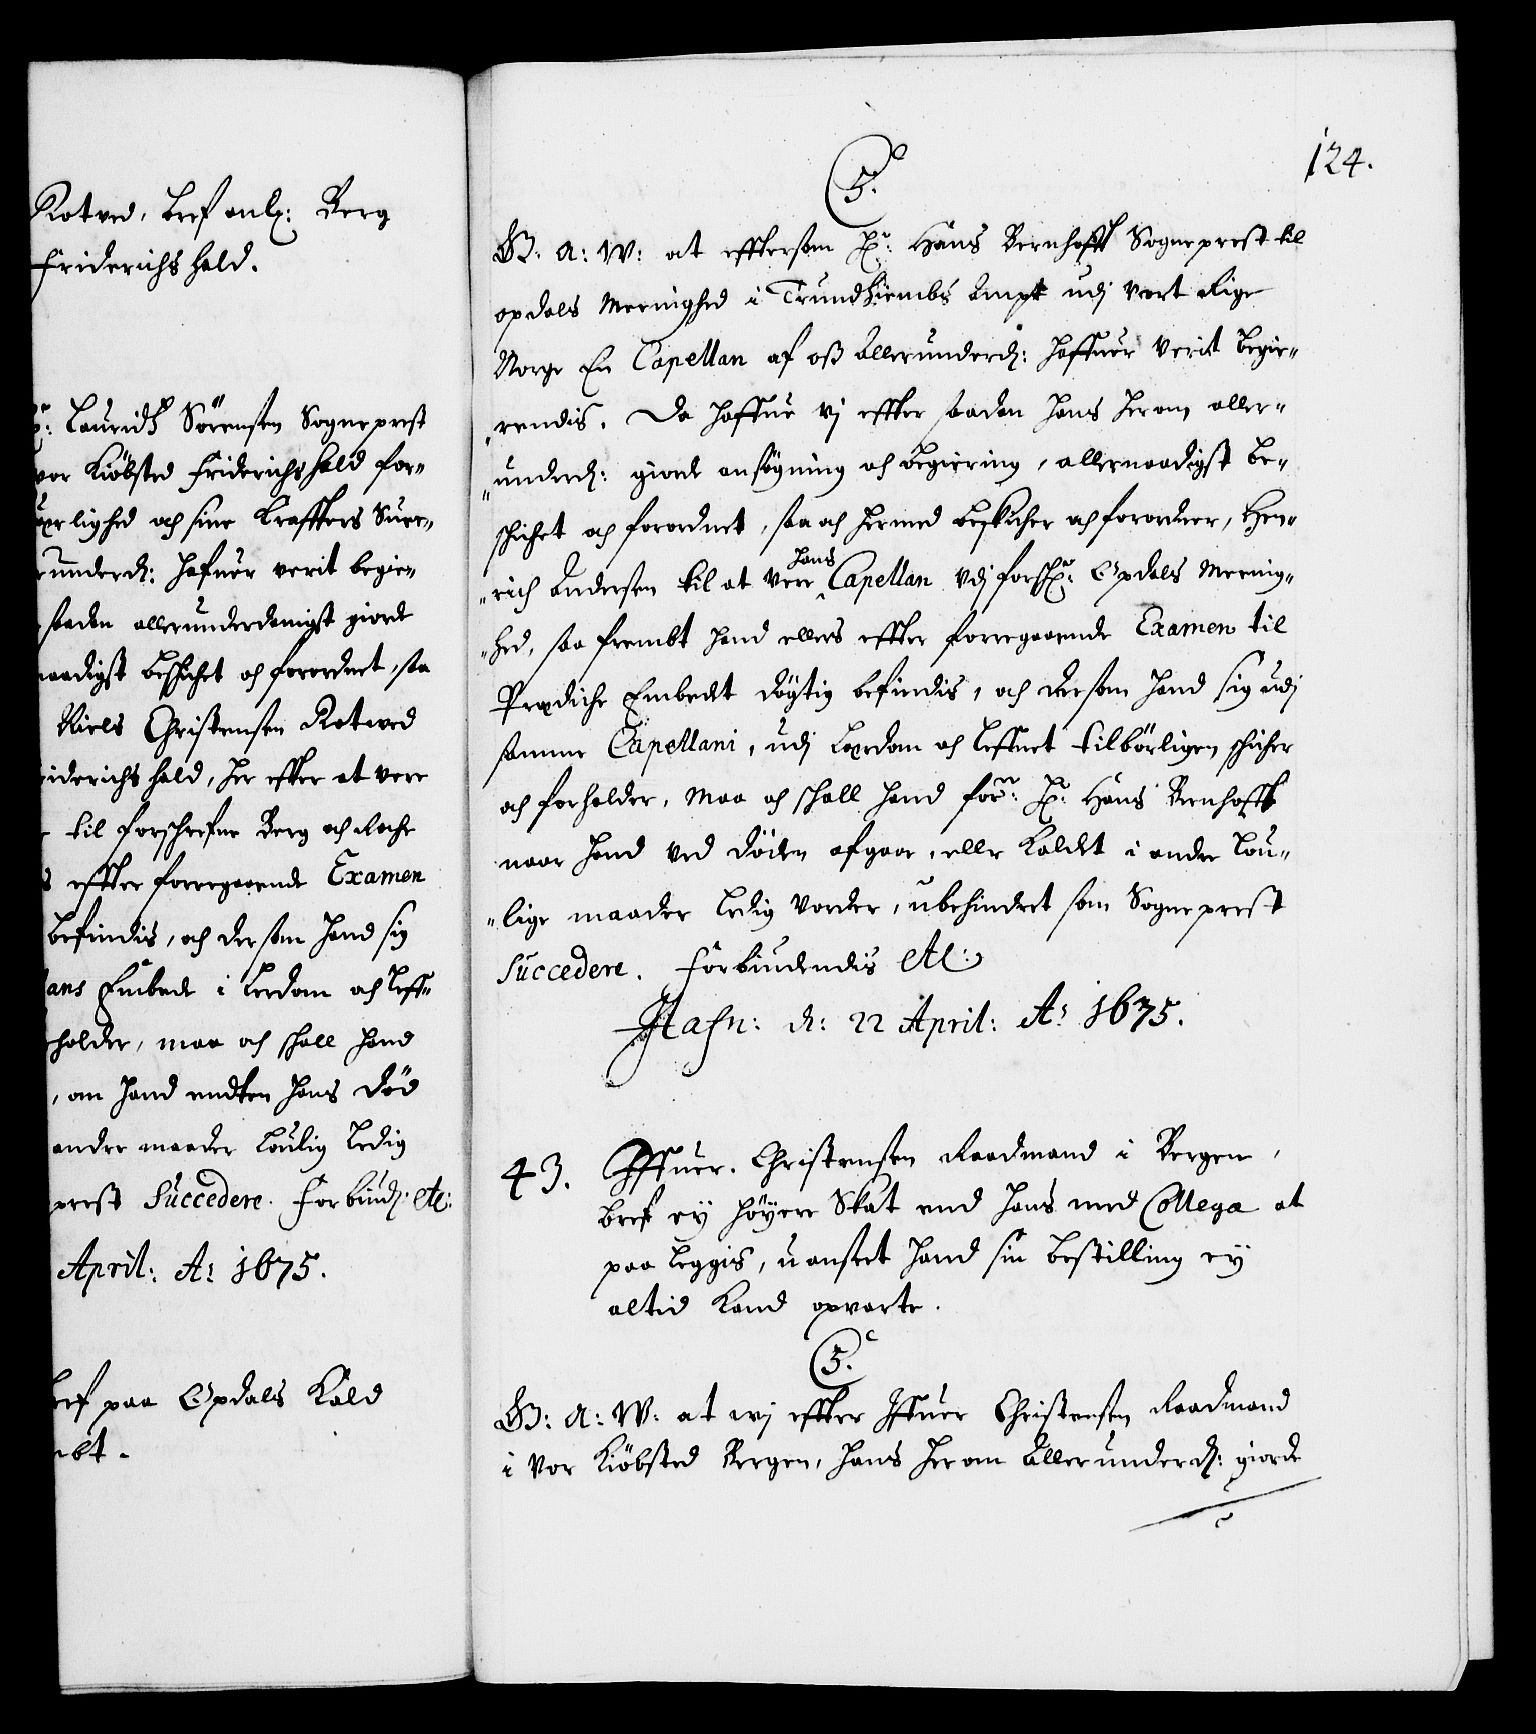 Rotved, bref anlg: Berg
Friderichshald.
hr: Lauridtz Sörensen Sogneprest
vor Kiöbsted Friderichshald for-
erlighed och sine Kraffters Suee-
erunderd: hafuer verit begie-
saadan allerunderdanigst giorde
naadigst beschichet och forordnet, saa
Niels Christensen Rotwed
riderichshald, her effter at vere
til forschrefne Berg och Roche
s effter foregaaende Examen
befindis, och dersom hand sig
ans Embede i Lerdom och Leff-
holder, maa och schall hand
, om hand endten hans död
andre maader loulig ledig
prest Succedere. Forbiud: etc:
April: Ao 1675.
bref paa Opdals Kald
mbt.
124.
C. 5.
G. A: W: at efftersom Hr: Hans Bernhofft Sogneprest til
opdals Meenighed i Trundhiembs Ampt udj vort Rige
Norge En Capellan af oss Allerunderd: haffuer verit begie-
"rendis. Da haffue vj effter saadan hans herom aller-
"underd: giorde ansögning och begiering, allernaadigst be-
schichet och forordnet, saa och hermed beskicher och forordner, Hen-
hans
"rich Andersen til at vere Capellan vdj forschr: Opdals Meenig-
"hed, saa frembt hand ellers effter foregaaende Examen til
Prædiche Embedet dögtig befindis, och dersom hand sig udj
samme Capellani, udj Lærdom och Leffnet tilbörligen schicher
och forholder, Maa och schall hand forn: Hr: Hans Bernhofft
naar hand ved döden afgaar, eller Kaldet i andre Lou-
"lige maader ledig vorder, ubehindret som Sogneprest
Succedere. Forbiudendis etc:
Hafn: d: 22 April: Ao 1675.
43. Iffuer Christensen Raadmand i Bergen,
bref ey höyere Skat end hans med Collega at
paa leggis, uanseet hand sin bestilling ey
altid kand opvarte.
C. 5.
G: A: W: at wj effter Iffuer Christensen Raadmand
i Vor Kiöbsted Bergen, hans herom Allerunderd: giorde